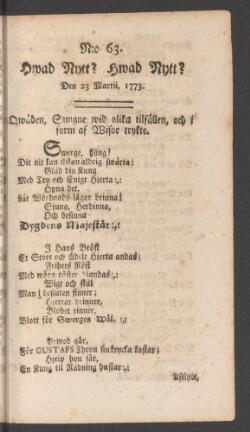 N:o 63.
Hwad Nytt? Hwad Nytt?
Den 23 Martii, 1773.
Qwäden, Siungne wid olika tilfällen, och i
form af Wisor trykte.
Swerge, siung!
Dit nit kan afskan aldrig swärta:
Gläd din Kung
Med Tro och Enigt Hjerta:,:
Hyna det,
Låt Wördnads-låger brinna!
Siung, Herdinna,
Och besinna
Dygdens Majestät:,:
I Hans Bröst
Et Stort och Ädelt Hjerta andas;
Frihets Röst
Med wåra röster blandas:,:
Wigt och skäl
Man i besluten finner;
Hiertat brinner,
Blodet rinner,
Blott för Swerges Wäl. :,:
Armod går,
För GUSTAFS Thron sin krycka kastar;
Hjelp hon får,
En Kung til Rådning hastar:,: